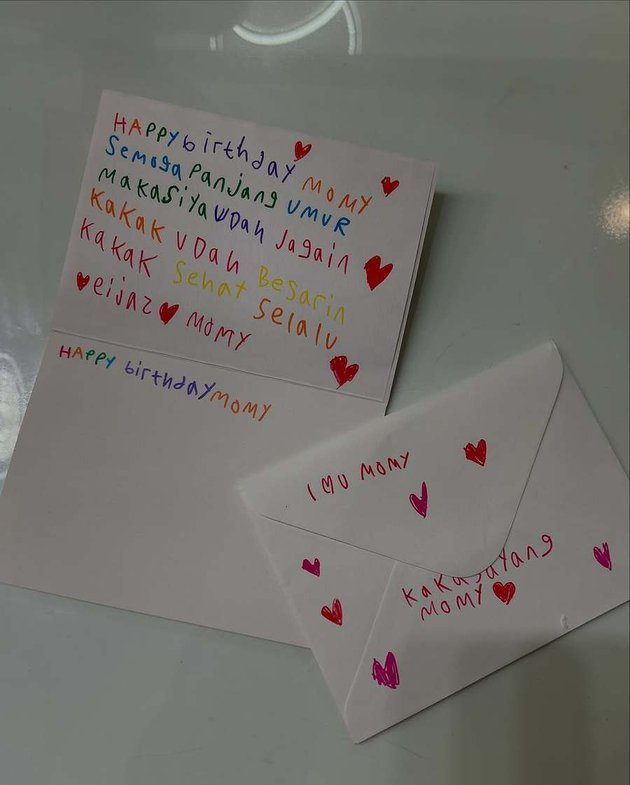 HAPPY birthday MOMY
Semoga Panjang UMUR
MaKaSiya UDah Jagain
KaKaK UDah Besarin
KaKaK Sehat Selalu
❤eijaz❤ MOMY
HAPPY birthday MOMY
I ❤ U MOMY
KaKaSayang
MOMY❤